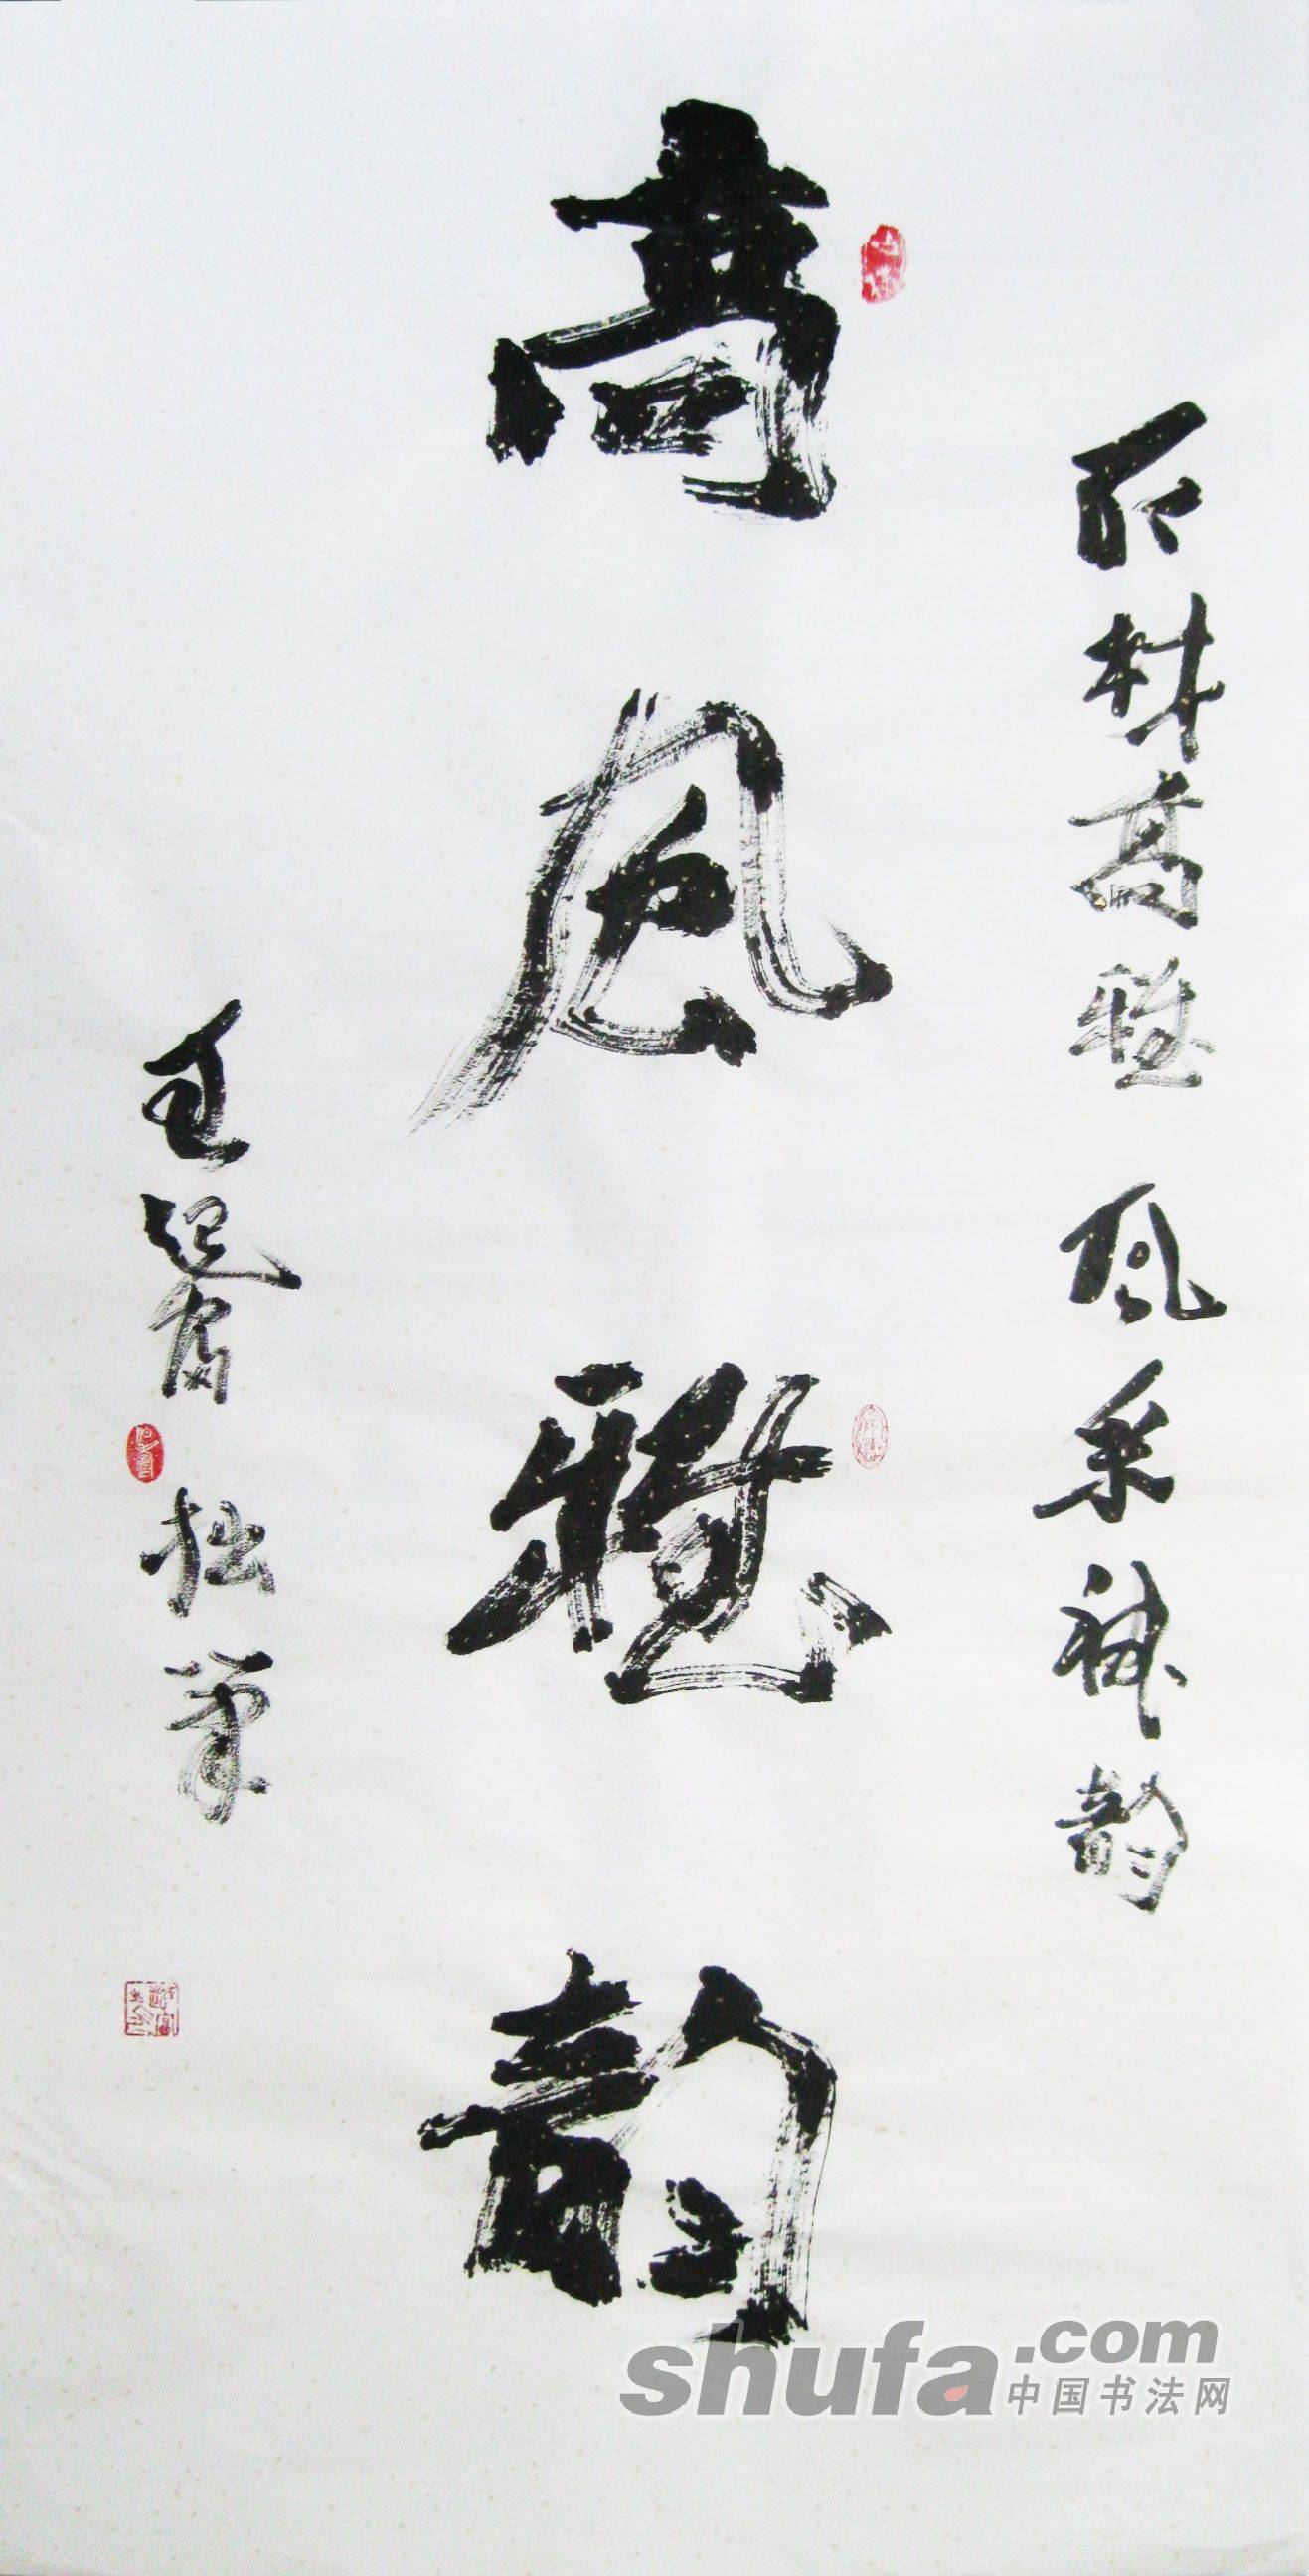 取材高雅 风采神韵
高风雅韵
王 拙笔
shufa.com
中国书法网